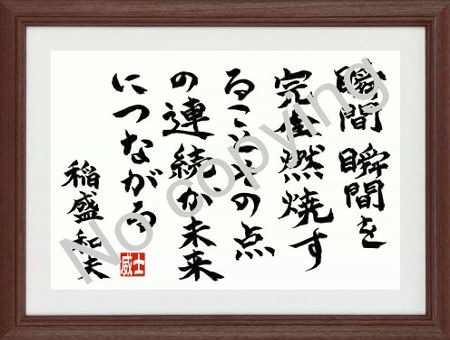 瞬間瞬間を
完全燃焼す
ることその点
の連続が未来
につながる
稲盛和夫
威士
No copying